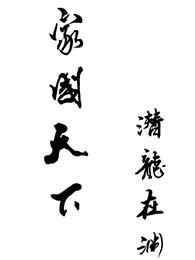 家國天下
潛龍在渊